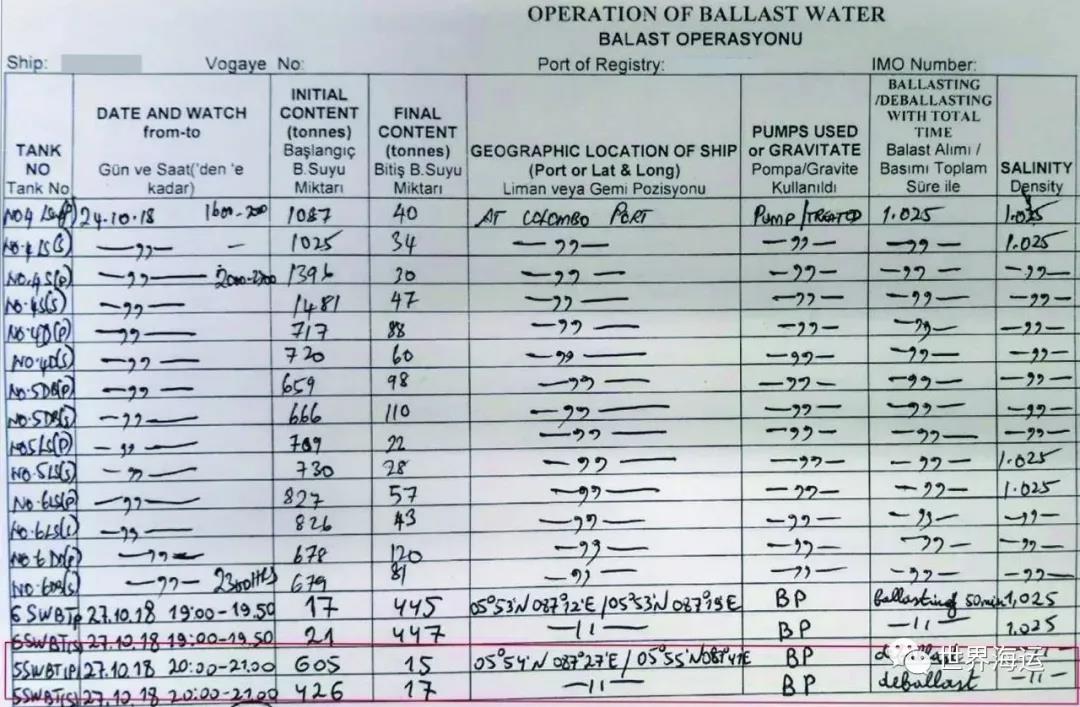 OPERATION OF BALLAST WATER
BALAST OPERASYONU
Ship: Vogaye No: Port of Registry: IMO Number:
TANK NO Tank No
DATE AND WATCH from-to Gün ve Saat('den 'e kadar)
INITIAL CONTENT (tonnes) Başlangıç B.Suyu Miktarı
FINAL CONTENT (tonnes) Bitiş B.Suyu Miktarı
GEOGRAPHIC LOCATION OF SHIP (Port or Lat & Long) Liman veya Gemi Pozisyonu
PUMPS USED or GRAVITATE Pompa/Gravite Kullanıldı
BALLASTING /DEBALLASTING WITH TOTAL TIME Balast Alımı / Basımı Toplam Süre ile
SALINITY Density
24.10.18 1087 40 AT COLOMBO PORT PUMP/TREATED 1.025 1.025
—〃— 1025 34 —〃— —〃— —〃— 1.025
NO.4S(P) —〃— 1396 30 —〃— —〃— —〃— —〃—
NO.4S(S) —〃— 1481 47 —〃— —〃— —〃— —〃—
NO.4D(P) —〃— 717 88 —〃— —〃— —〃— —〃—
NO.4D(S) —〃— 720 60 —〃— —〃— —〃— —〃—
NO.5DB(P) —〃— 659 98 —〃— —〃— —〃— —〃—
NO.5DB(S) —〃— 666 110 —〃— —〃— —〃— —〃—
NO5LS(P) —〃— 22 —〃— —〃— —〃— —〃—
NO.5LS(S) —〃— 730 28 —〃— —〃— —〃— 1.025
NO.6LS(P) —〃— 827 57 —〃— —〃— —〃— 1.025
—〃— 826 43 —〃— —〃— —〃— —〃—
—〃— 678 120 —〃— —〃— —〃— —〃—
NO.6DB(S) —〃— 2300HRS 679 81 —〃— —〃— —〃— —〃—
6SWBTP 27.10.18 19:00-19.50 17 445 05°53'N 087°12'E /05°53'N 087°19'E BP ballasting 50min 1,025
6SWBT(S) 27.10.18 19:00-19.50 21 447 —11— BP —11— 1.025
5SWBT(P) 27.10.18 20:00-21.00 605 15 05°54'N 087°27'E / 05°55'N 087°41'E BP —11—
5SWBT(S) 27.10.18 20:00-21.00 426 17 —11— BP deballast —11—
世界海运